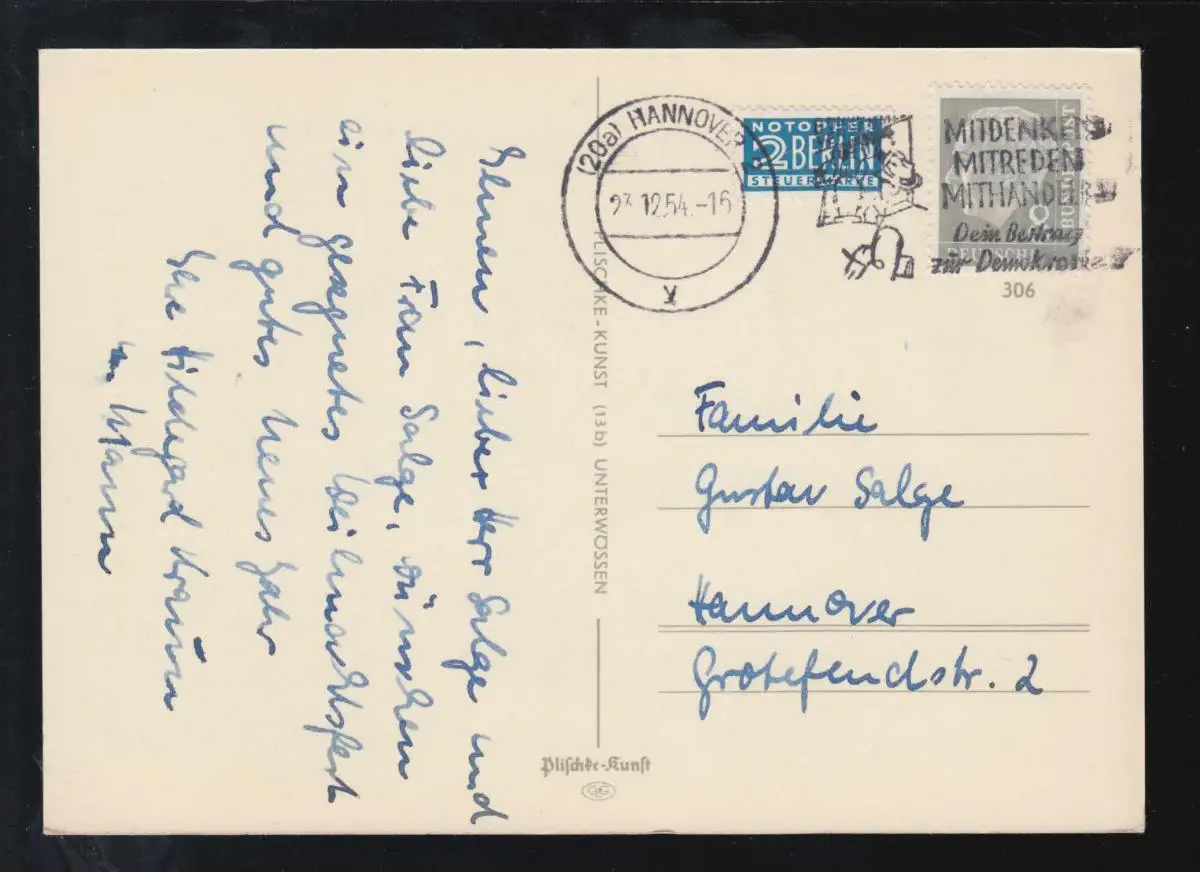 Ihnen, lieber Herr Salge und
liebe Frau Salge, wünschen
ein gesegnetes Weihnachtsfest
und gutes neues Jahr
Ihre Hildegard
u. Mann
(20a) HANNOVER
23.12.54.-16
x
NOTOPFER
2 BERLIN
STEUERMARKE
MITDENKEN
MITREDEN
MITHANDELN
Dein Beitrag
zur Demokratie
8
DEUTSCHE
BUNDESPOST
306
PLISCHKE-KUNST (13b) UNTERWÖSSEN
Familie
Gustav Salge
Hannover
Grotefendstr. 2
Plischke-Kunst